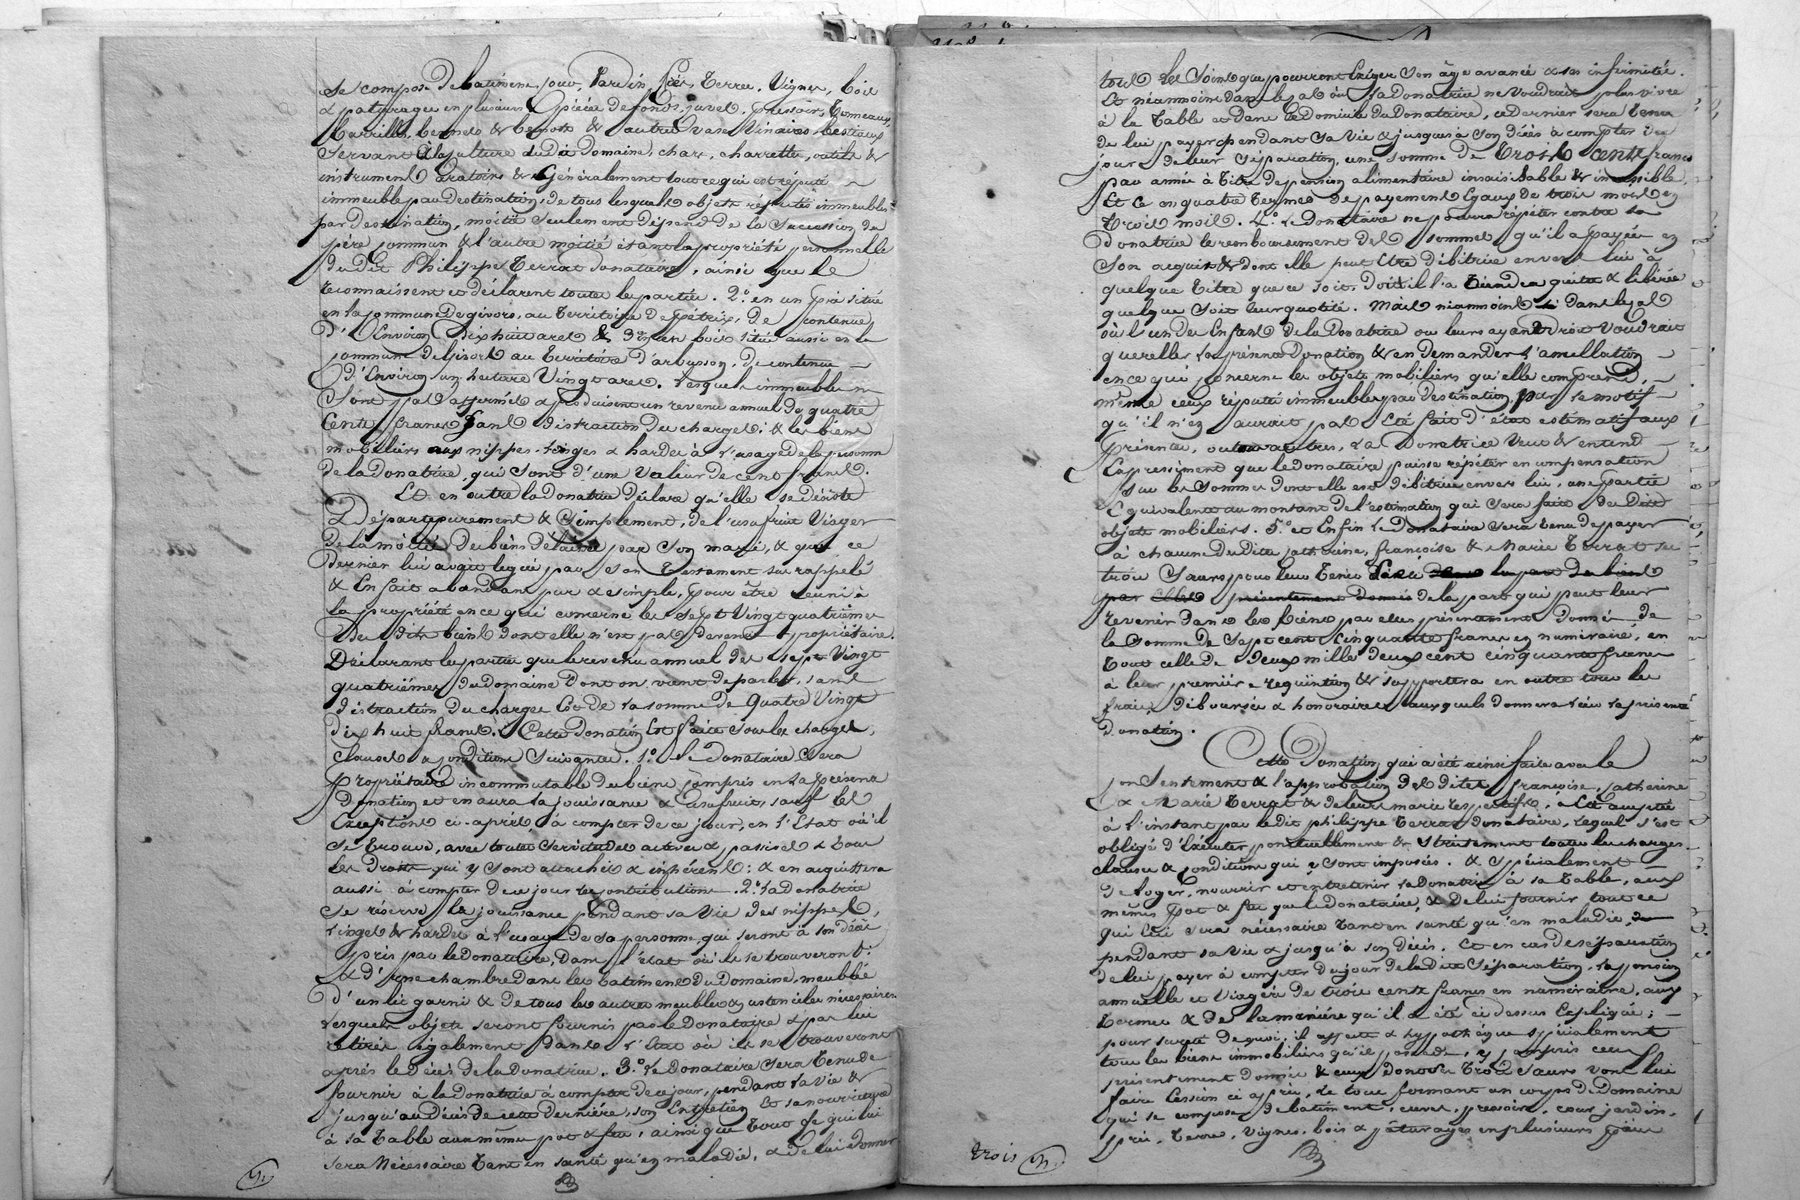 se compose de batiment, cour, Jardin, Prés, Terres, Vignes, bois
& paturages en plusieurs pièces de fonds, cuves, pressoirs, tonneaux,
barrilles, bennes & bennots & autres vases Vinaires, bestiaux
servant à la culture dudit domaine, chars, charrettes, outils &
instrumens aratoires & généralement tout ce qui est réputé
immeuble par destination, de tous lesquels objets réputés immeubles
par destination, moitié seulement dépend de la succession du
père commun & l'autre moitié étant la propriété personnelle
dudit Philippe Terrat donataire, ainsi que le
reconnaissent et déclarent toutes les parties. 2.° en un pré situé
en la commune de givors, au territoire de, de contenue
d'Environ dix huit ares & 3.° en bois situé aussi en la
commune de Givors au territoire d'arbuson, de contenue
d'Environ un hectare Vingt ares. Lesquels immeubles ne
sont pas affermés & produisent un revenu annuel de quatre
Cents francs sans distraction des charges; & les biens
mobiliers aux nippes, linges & hardes à l'usage de la personne
de la donatrice, qui sont d'une valeur de cent francs.
Et en outre la donatrice déclare qu'elle se désiste
& Départ purement & Simplement, de l'usufruit Viager
de la moitié des biens délaissés par Son mari, & que ce
dernier lui avait légué par son testament sus rappelé
& En fait abandon pur & simple, pour être réuni à
la propriété en ce qui concerne les sept Vingt quatrièmes
Des dits biens dont elle n'est pas devenue propriétaire.
Déclarant les parties que le revenu annuel des sept Vingt
quatrièmes du domaine dont on vient de parler, sans
distraction des charges Est de la somme de Quatre Vingt
dix huit francs. Cette donation Est faite sous les charges,
clauses & conditions Suivantes. 1.° Le Donataire Sera
Propriétaire incommutable des biens compris en la présente
donation et en aura la jouissance & usufruit, sauf les
Exceptions ci-après, à compter de ce jour, en l'Etat où il
se trouve, avec toutes servitudes actives & passives & tous
les Droits qui y sont attachés & inhérens: & en acquittera
aussi à compter de ce jour les contributions. 2.° La donatrice
se réserve la jouissance pendant sa vie des nippes,
linges & hardes à l'usage de sa personne qui seront à son décès
pris par le donataire, Dans l'état où ils se trouveront:
& d'une chambre dans les batimens du domaine, meublée
d'un lit garni & de tous les autres meubles & ustenciles nécessaires
lesquels objets seront fournis par le Donataire & par lui
retirés également dans l'état où ils se trouveront
après le décès de la Donatrice. 3.° Le Donataire Sera tenu de
fournir à la donatrice à compter de ce jour, pendant sa Vie &
jusqu'au Décès de cette dernière, son Entretien & sa nourriture
à sa table aux mêmes pot & feu, ainsi que tout ce qui lui
sera Nécessaire tant en santé qu'en maladie, & de lui donner
tous les Soins que pourront Exiger Son âge avancé & ses infirmités.
Et néanmoins dans le cas où la Donatrice ne voudrait plus vivre
à la table et dans le domicile du Donataire, ce dernier sera tenu
de lui payer pendant Sa Vie & jusques à son décès à compter du
jour de leur Séparation, une somme de trois cents francs
par année à titre de pension alimentaire insaisissable & incessible,
Et ce en quatre termes de payement Egaux de trois mois en
trois mois. 4.° Le Donataire ne pourra répéter contre sa
donatrice le remboursement des sommes qu'il a payées en
Son acquit & dont elle peut être débitrice envers lui à
quelque titre que ce soit. Dont il l'a tiendra quitte & libérée
quelque soit leur quotité. Mais néanmoins dans le cas
où l'un des Enfans de la Donatrice ou leurs ayants Droit Voudrait
quereller la présente Donation & en Demander l'annullation
en ce qui concerne les objets mobiliers qu'elle comprend,
même ceux réputés immeubles par destination, par le motif
qu'il n'en aurait pas Eté fait d'état estimatif aux
présentes, ou autres, la donatrice Veut & entend
Expressément que le donataire puisse répéter en compensation
Sur les sommes dont elle est débitrice envers lui, une partie
Equivalente au montant de l'estimation qui sera faite des Dits
objets mobiliers. 5.° et Enfin Le Donataire sera tenu de payer
à chacune des dites Catherine, françoise & Marie Terrat ses
trois Soeurs pour leur tenir lieu
de la part qui peut leur
revenir dans les biens par elles présentement Donnés de
la Somme de Sept cent cinquante francs en numéraire, en
tout celle de deux mille deux cent cinquante francs
à leur première requisition & supportera en outre tous les
frais, déboursés & honoraires auxquels donnera lieu la présente
donation.
Cette Donation qui a été ainsi faite avec le
consentement & l'approbation des dites françoise, Catherine
& Marie Terrat & de leurs maris respectifs, a Eté acceptée
à l'instant par ledit philippe Terrat donataire, lequel s'est
obligé d'Exécuter ponctuellement & strictement toutes les charges
clauses & conditions qui y sont imposées. & spécialement
de loger, nourrir et entretenir la donatrice à sa table, aux
mêmes pot & feu que le donataire, & de lui fournir tout ce
qui lui sera nécessaire tant en santé qu'en maladie,
pendant sa vie & jusqu'à son décès. Et en cas de séparation
de lui payer à compter du jour de la dite Séparation, la pension
annuelle et Viagère de trois cents francs en numéraire, aux
termes & de la manière qu'il a été ci dessus Expliqué;
pour sureté de quoi, il affecte & hypothèque spécialement
tous les biens immobiliers qu'il possède, y compris ceux
présentement donnés & ceux dont ses trois Soeurs vont lui
faire Cession ci après, Le tout formant un corps de Domaine
qui se compose de batiment, cuves, pressoirs, cour, jardin,
prés, terres, Vignes, bois & pâturages en plusieurs pièces
trois